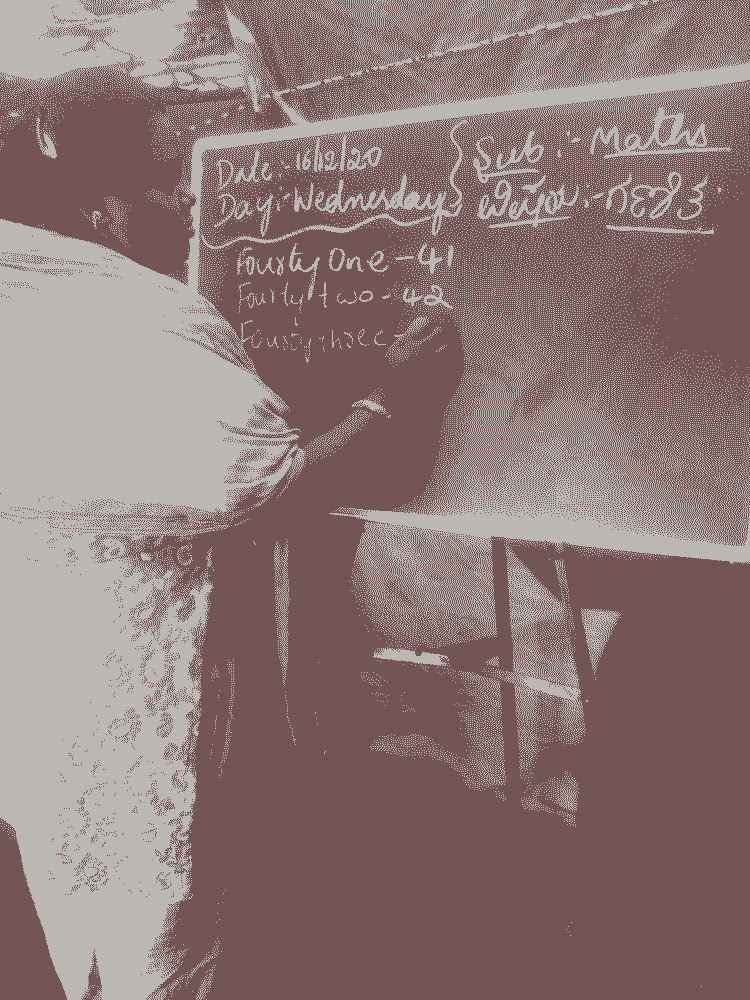 Date:-16/12/20
Day:-Wednesday
Sub:-Maths
ವಿಷಯ:-ಗಣಿತ
Fourty One-41
Fourty two-42
Fourty three-